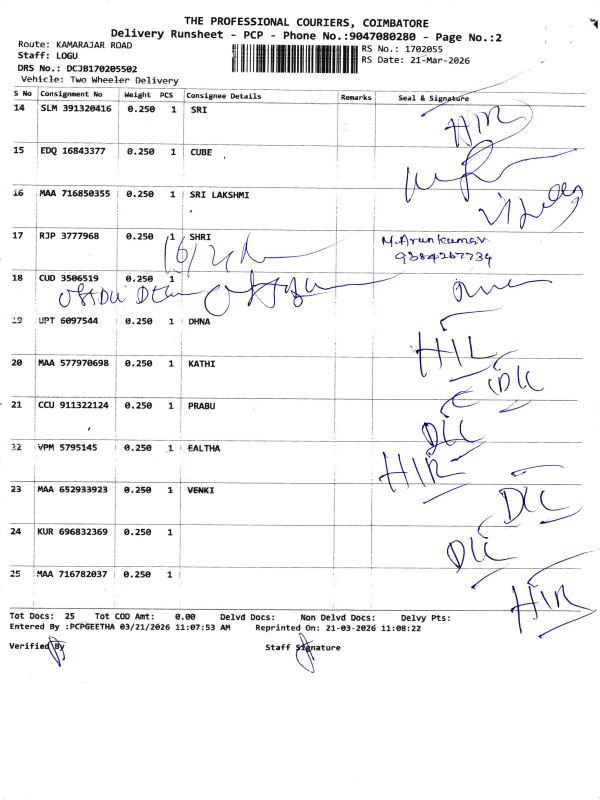 THE PROFESSIONAL COURIERS, COIMBATORE
Delivery Runsheet - PCP - Phone No.:9047080280 - Page No.:2
Route: KAMARAJAR ROAD
Staff: LOGU
RS No.: 1702055
RS Date: 21-Mar-2026
DRS No.: DCJB170205502
Vehicle: Two Wheeler Delivery
S No Consignment No Weight PCS Consignee Details Remarks Seal & Signature
14 SLM 391320416 0.250 1 SRI
HIR
15 EDQ 16843377 0.250 1 CUBE
16 MAA 716850355 0.250 1 SRI LAKSHMI
17 RJP 3777968 0.250 1 SHRI
M.Arunkumar
9384267734
18 CUD 3506519 0.250 1
19 UPT 6097544 0.250 1 DHNA
HIL
20 MAA 577970698 0.250 1 KATHI
DLC
21 CCU 911322124 0.250 1 PRABU
DLC
22 VPM 5795145 0.250 1 EALTHA
HIR
23 MAA 652933923 0.250 1 VENKI
DLC
24 KUR 696832369 0.250 1
DLC
25 MAA 716782037 0.250 1
HIR
Tot Docs: 25 Tot COD Amt: 0.00 Delvd Docs: Non Delvd Docs: Delvy Pts:
Entered By :PCPGEETHA 03/21/2026 11:07:53 AM Reprinted On: 21-03-2026 11:08:22
Verified By
Staff Signature